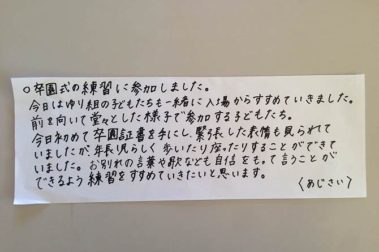 ○卒園式の練習に参加しました。
今日はゆり組の子どもたちも一緒に入場からすすめていきました。
前を向いて堂々とした様子で参加する子どもたち。
今日初めて卒園証書を手にし、緊張した表情も見られて
いましたが、年長児らしく歩いたり座ったりすることができて
いました。お別れの言葉や歌なども自信をもって言うことが
できるよう練習をすすめていきたいと思います。
〈あじさい〉